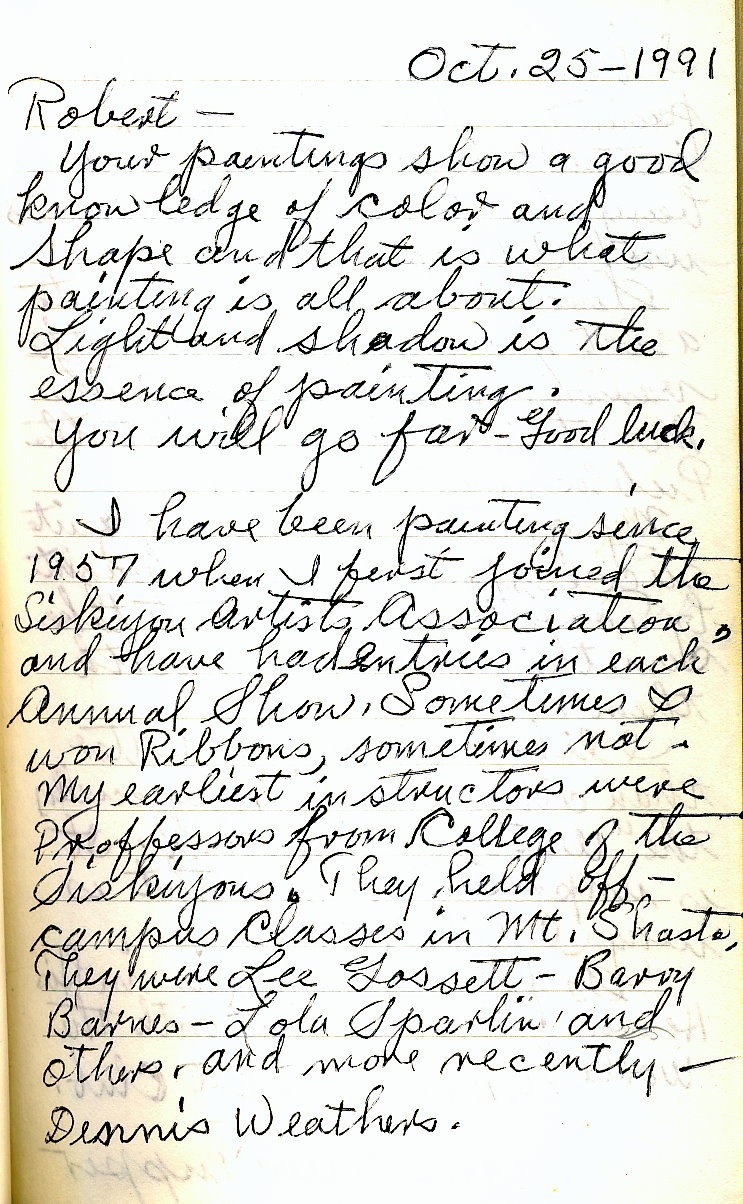 Oct. 25-1991
Robert —
Your paintings show a good
knowledge of color and
shape and that is what
painting is all about.
Light and shadow is the
essence of painting.
You will go far - Good luck.
I have been painting since
1957 when I first joined the
Siskiyou Artists Association,
and have had entries in each
Annual Show. Sometimes I
won Ribbons, sometimes not.
My earliest instructors were
Proffessors from College of the
Siskiyous. They held off-
campus Classes in Mt. Shasta,
They were Lee Gossett - Barry
Barnes - Lola Sparlin and
others, and more recently —
Dennis Weathers.